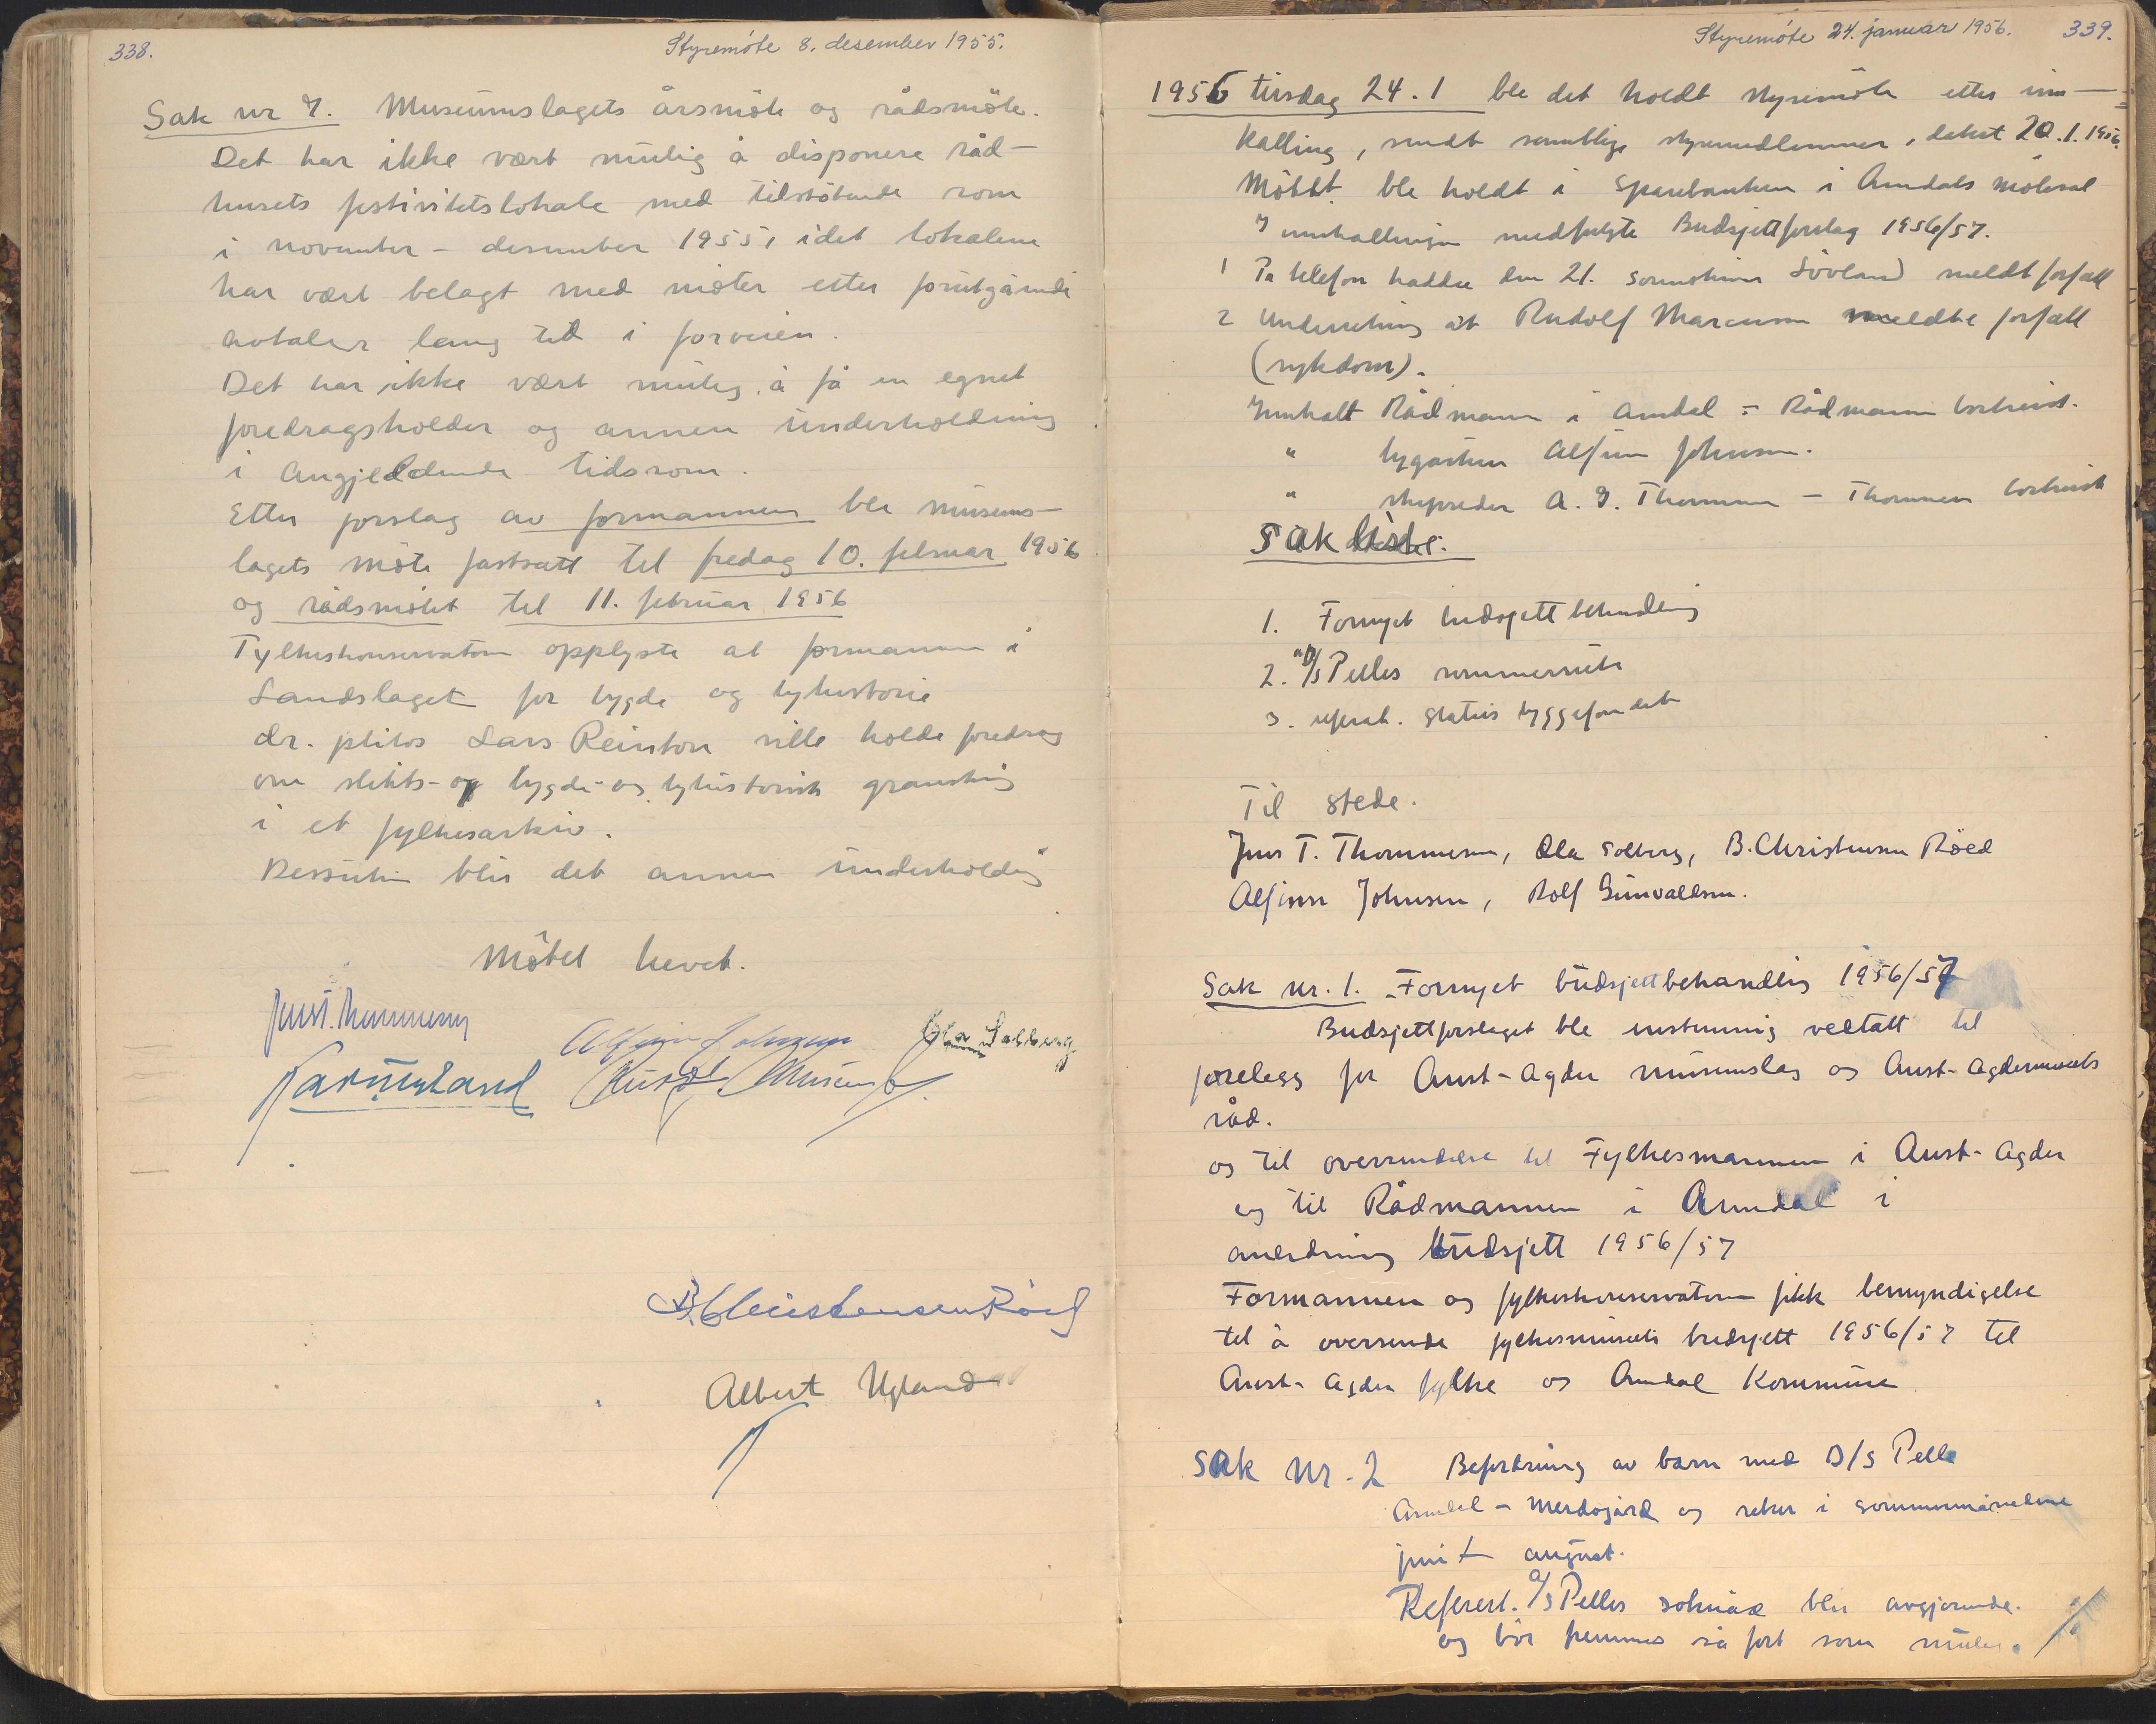 338.
Styremöte 8. desember 1955.
Sak nr 7. Museumslagets årsmöte og rådsmöte.
Det har ikke vært mulig å disponere råd-
husets festivitetslokale med tilstötende rom
i november - desember 1955, idet lokalene
har vært belagt med möter etter forutgående
avtaler lang tid i forveien.
Det har ikke vært mulig å få en egnet
foredragsholder og annen underholdning
i angjeldende tidsrom.
Etter forslag av formannen ble museums-
lagets möte fastsatt til fredag 10. februar 1956
og rådsmötet til 11. februar 1956
Fylkeskonservatoren opplyste at formannen i
Landslaget for bygde og byhistorie
dr. philos Lars Reinton ville holde foredrag
om slekts- og bygde- og byhistorisk gransking
i et fylkesarkiv.
Dessuten blir det annen underholdning
Mötet hevet.
Alfinn Johnsen
Ola Solberg
B. Christensen Röed
Albert Ugland
Styremöte 24. januar 1956.
339.
1956 tirsdag 24.1 ble det holdt styremöte etter inn-
kalling, sendt samtlige styremedlemmer, datert 20.1.1956.
Mötet ble holdt i Sparebanken i Arendals mötesal
I innkallingen medfulgte Budsjettforslag 1956/57.
1 På telefon hadde den 21. Lövland meldt forfall
2 Underretning at Rudolf Marcussen meldte forfall
(sykdom).
Innkalt Rådmann i Arendal = Rådmann bortreist.
" bygartner Alfinn Johnsen.
" skipsreder A. I. Thommesen - Thommesen bortreist
Sakliste:
1. Fornyet budsjettbehandling
2. A/S Pelles sommerrute
3. referat. Status byggefondet
Til stede.
Jens T. Thommesen, Ola Solberg, B. Christensen Röed
Alfinn Johnsen, Rolf Gunvaldsen.
Sak nr. 1. Fornyet budsjettbehandling 1956/57
Budsjettforslaget ble enstemmig vedtatt til
forelegg for Aust-Agder museumslag og Aust-Agdermuseets
råd.
og til oversendelse til Fylkesmannen i Aust-Agder
og til Rådmannen i Arendal i
anledning budsjett 1956/57
Formannen og fylkeskonservatoren fikk bemyndigelse
til å oversende fylkesmuseets budsjett 1956/57 til
Aust-Agder fylke og Arendal Kommune
Sak nr. 2 Befordring av barn med D/S Pelle
Arendal - Merdogård og retur i sommermånedene
juni t august.
Referert. A/S Pelles söknad blir avgjörende.
og bör fremmes så fort som mulig.